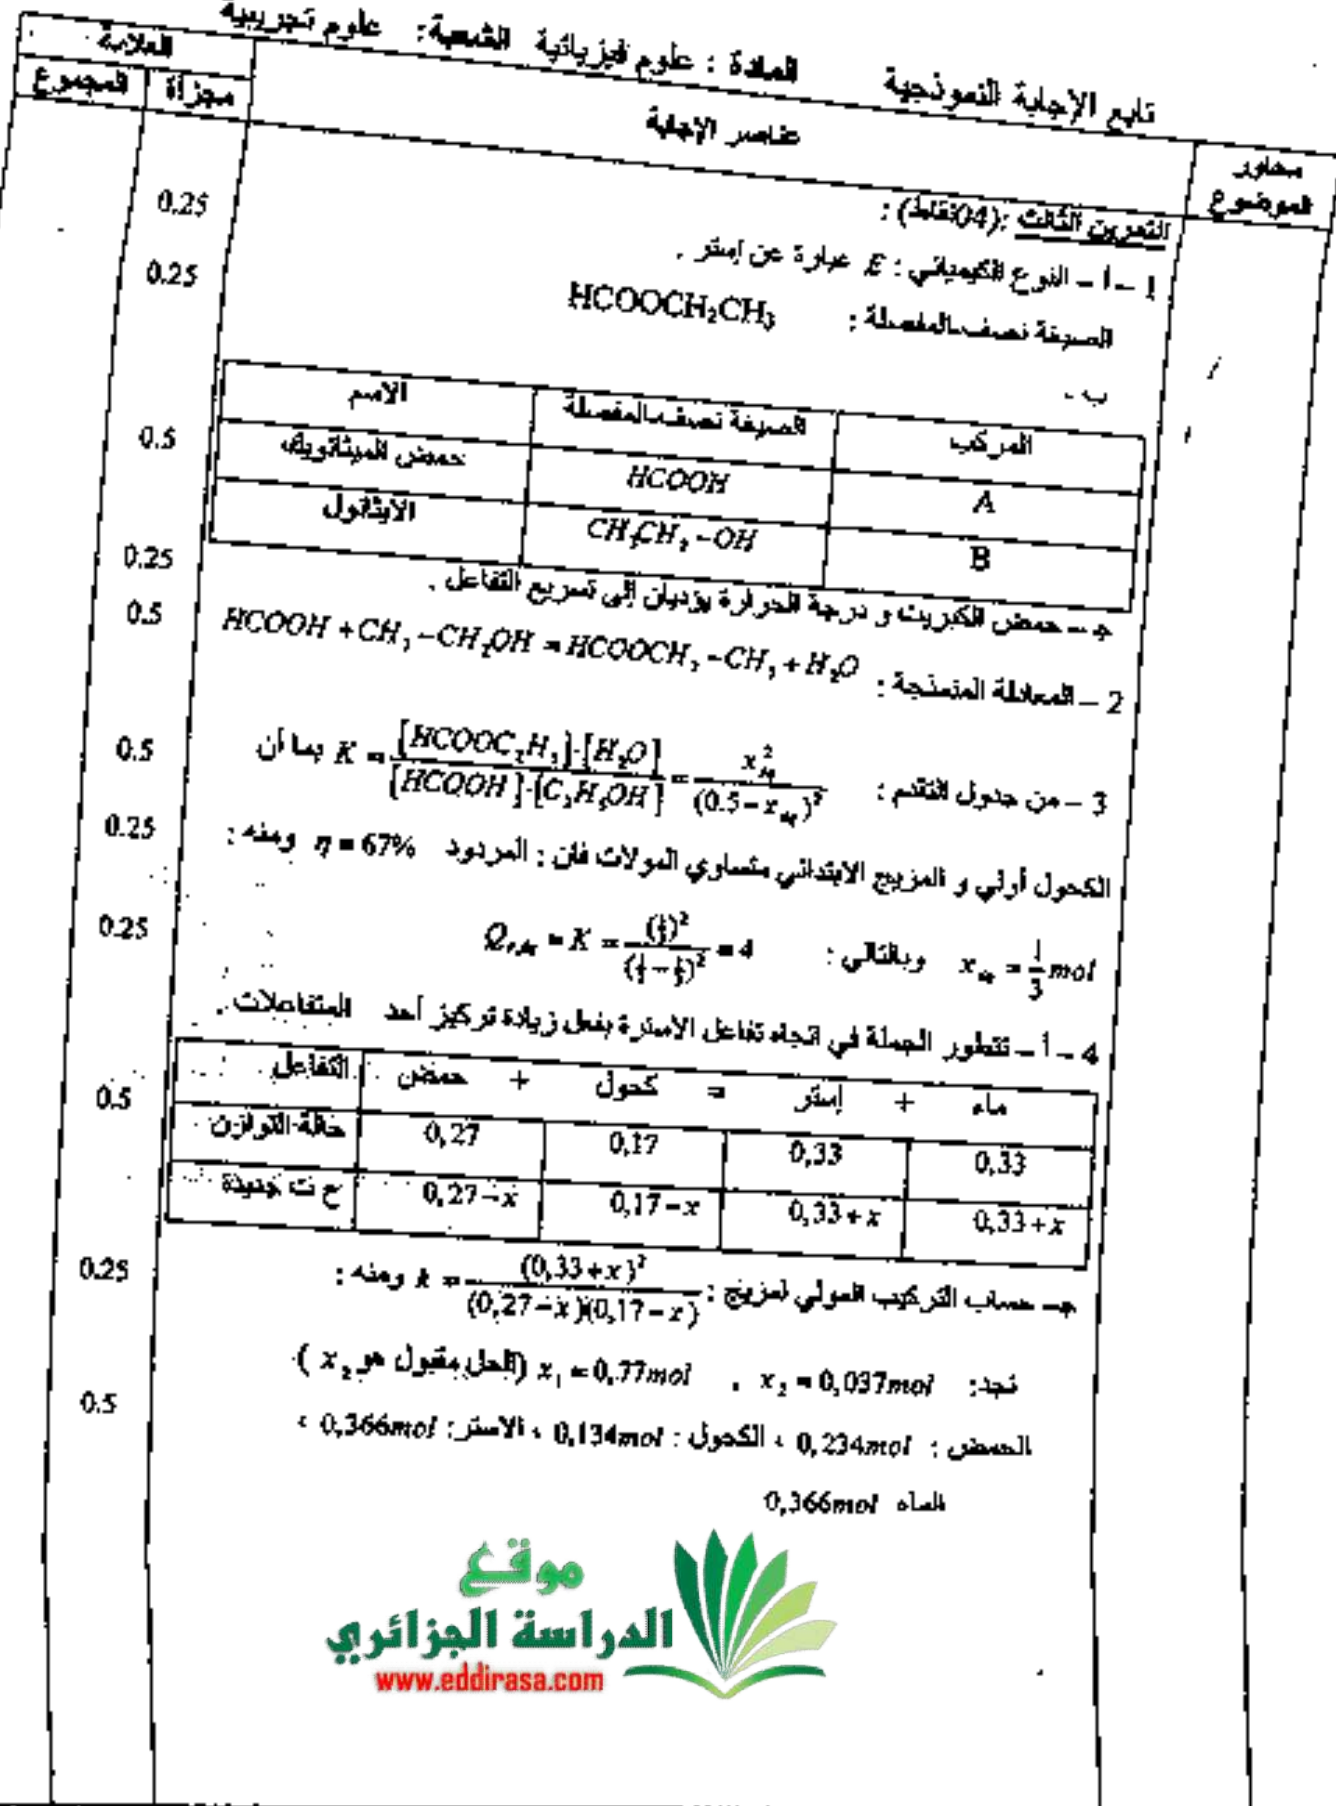 تابع الإجابة النموذجية المادة : علوم فيزيائية الشعبة: علوم تجريبية
محاور الموضوع
عناصر الإجابة
العلامة
مجزأة
المجموع
التمرين الثالث :(04نقاط) :
1 – أ – النوع الكيميائي : E عبارة عن إستر .
0.25
الصيغة نصف-المفصلة : HCOOCH₂CH₃
0.25
ب -
المركب الصيغة نصف-المفصلة الاسم
A HCOOH حمض الميثانويك
0.5
B CH₃CH₂ –OH الايثانول
ج – حمض الكبريت و درجة الحرارة يؤديان إلى تسريع التفاعل .
0.25
2 – المعادلة المنمذجة : HCOOH + CH₃ –CH₂OH = HCOOCH₂ –CH₃ + H₂O
0.5
3 – من جدول التقدم : K = [HCOOC₂H₅]·[H₂O] / [HCOOH]·[C₂H₅OH] = x²éq / (0.5 – xéq)² بما أن
0.5
الكحول أولي و المزيج الابتدائي متساوي المولات فان : المردود η = 67% ومنه :
0.25
xéq = 1/3 mol وبالتالي : Qr,éq = K = (1/3)² / (1/2 – 1/3)² = 4
0.25
4 – أ – تتطور الجملة في اتجاه تفاعل الاسترة بفعل زيادة تركيز أحد المتفاعلات .
التفاعل حمض + كحول = إستر + ماء
0.5
حالة التوازن 0,27 0,17 0,33 0,33
ح ت جديدة 0,27–x 0,17–x 0,33+x 0,33+x
ج– حساب التركيب المولي لمزيج : k = (0,33+x)² / (0,27–x)(0,17–x) ومنه :
0.25
نجد: x₂ = 0,037mol , x₁ = 0,77mol (الحل مقبول هو x₂ )
الحمض : 0,234mol ، الكحول : 0,134mol ، الاستر: 0,366mol ،
0.5
الماء 0,366mol
موقع
الدراسة الجزائري
www.eddirasa.com